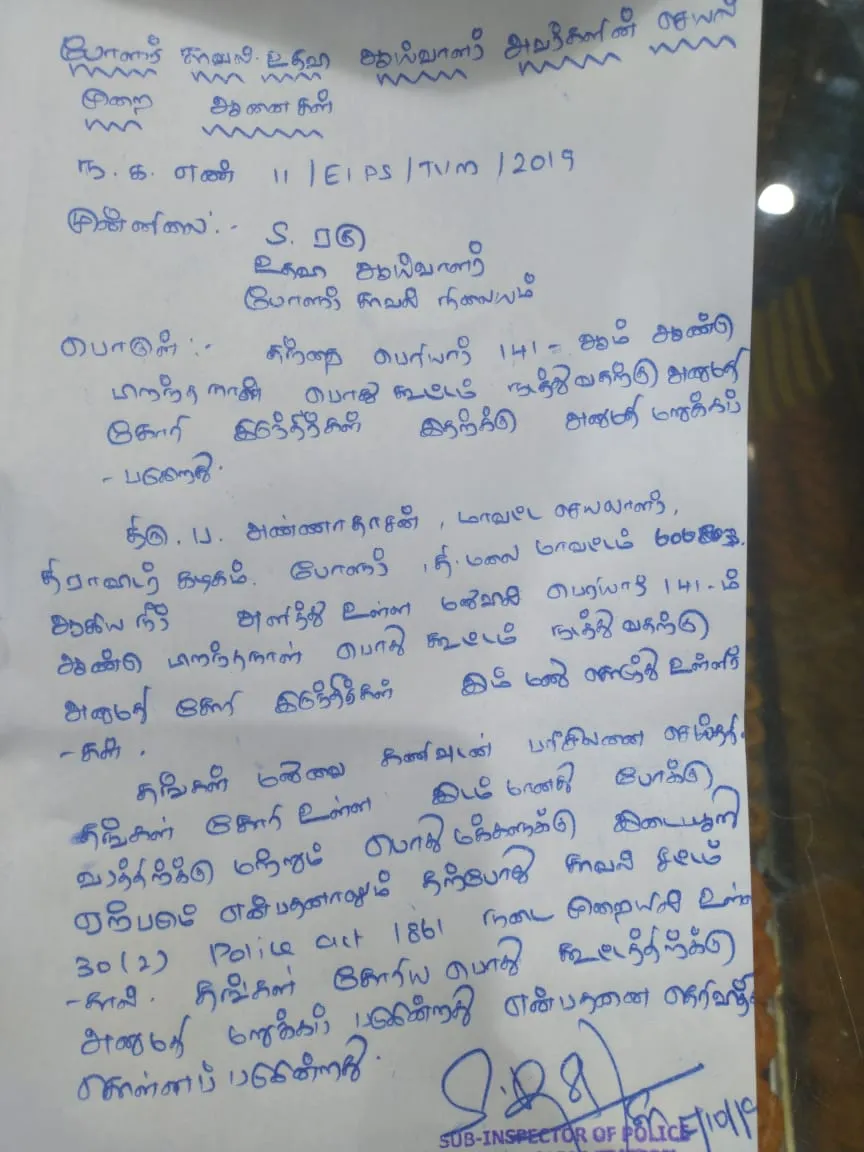 போளூர் காவல் உதவி ஆய்வாளர் அவர்களின் செயல்
முறை ஆணைகள்
ந. க. எண் 11 / E1 PS / TVM / 2019
முன்னிலை :- S. ரகு
உதவி ஆய்வாளர்
போளூர் காவல் நிலையம்
பொருள் :- தந்தை பெரியார் 141 - ஆம் ஆண்டு
பிறந்த நாள் பொது கூட்டம் நடத்துவதற்கு அனுமதி
கோரி இருந்தீர்கள் இதற்க்கு அனுமதி மறுக்கப்
- படுகிறது.
திரு. ப. அண்ணாதாசன், மாவட்ட செயலாளர்,
திராவிடர் கழகம். போளூர், தி. மலை மாவட்டம்
ஆகிய நீர் அளித்து உள்ள மனுவில் பெரியார் 141 - ம்
ஆண்டு பிறந்தநாள் பொது கூட்டம் நடத்துவதற்கு
அனுமதி கோரி இருந்தீர்கள் இம் மனு கொடுத்து உள்ளீர்
- கள்.
தங்கள் மனுவை கனிவுடன் பரிசீலனை செய்ததி.
தங்கள் கோரி உள்ள இடம் மானது போக்கு
வரத்திற்க்கு மற்றும் பொது மக்களுக்கு இடையூறு
ஏற்படும் என்பதனாலும் தற்போது காவல் சட்டம்
30 (2) Police act 1861 நடை முறையில் உள்ள
- தால். தங்கள் கோரிய பொது கூட்டத்திற்க்கு
அனுமதி மறுக்கப் படுகின்றது என்பதனை தெரிவித்
கொள்ளப் படுகின்றது.
/10/19
SUB-INSPECTOR OF POLICE